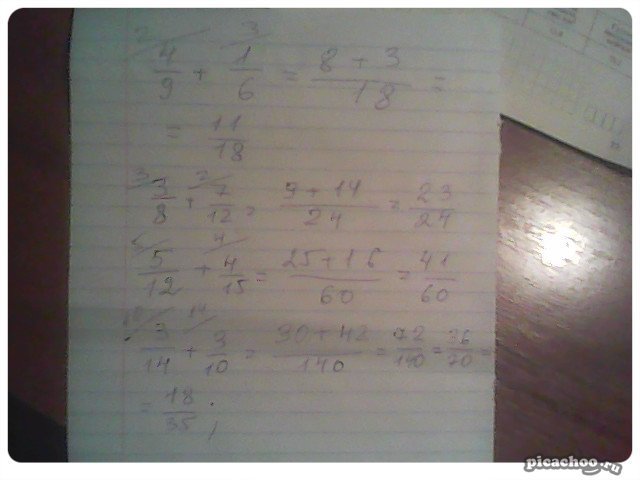 2/ 3/
4/9 + 1/6 = (8 + 3)/18 =
= 11/18
3/ 2/
3/8 + 7/12 = (9 + 14)/24 = 23/24
5/ 4/
5/12 + 4/15 = (25 + 16)/60 = 41/60
10/ 14/
3/14 + 3/10 = (30 + 42)/140 = 72/140 = 36/70 =
= 18/35 ;
picachoo.ru